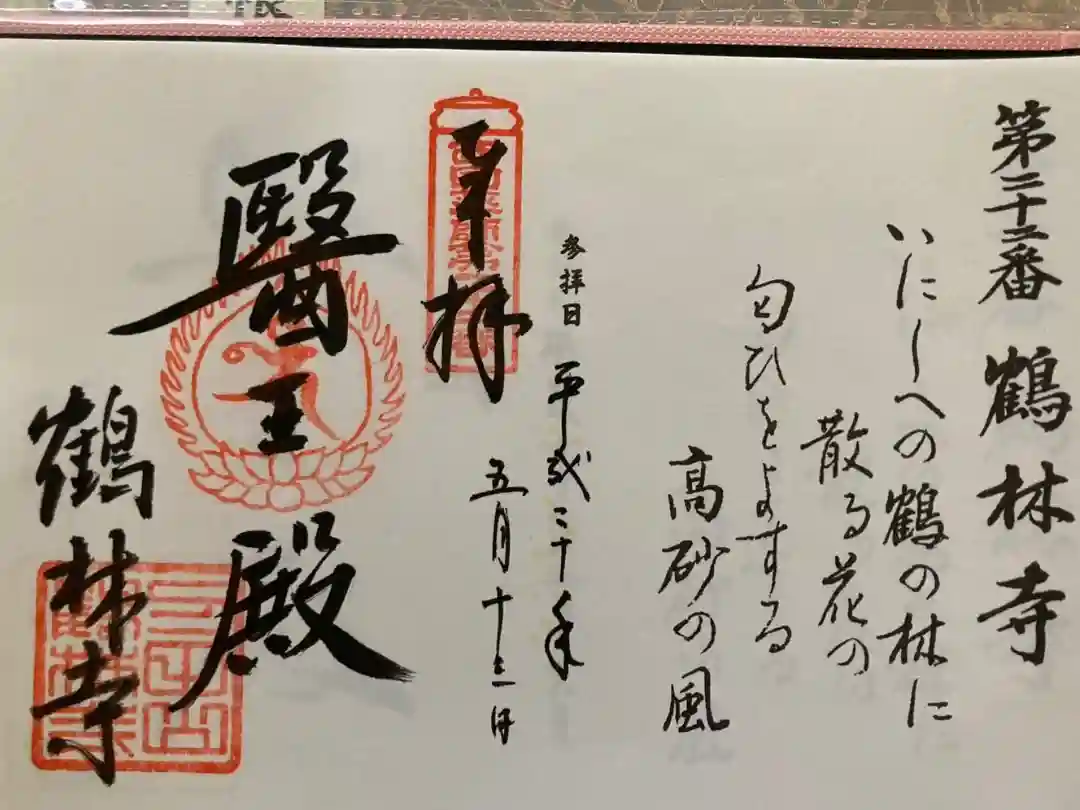 第二十二番 鶴林寺
いにしへの鶴の林に
散る花の
匂ひをよする
高砂の風
参拝日 平成三十年
五月十三日
奉拝
醫王殿
鶴林寺